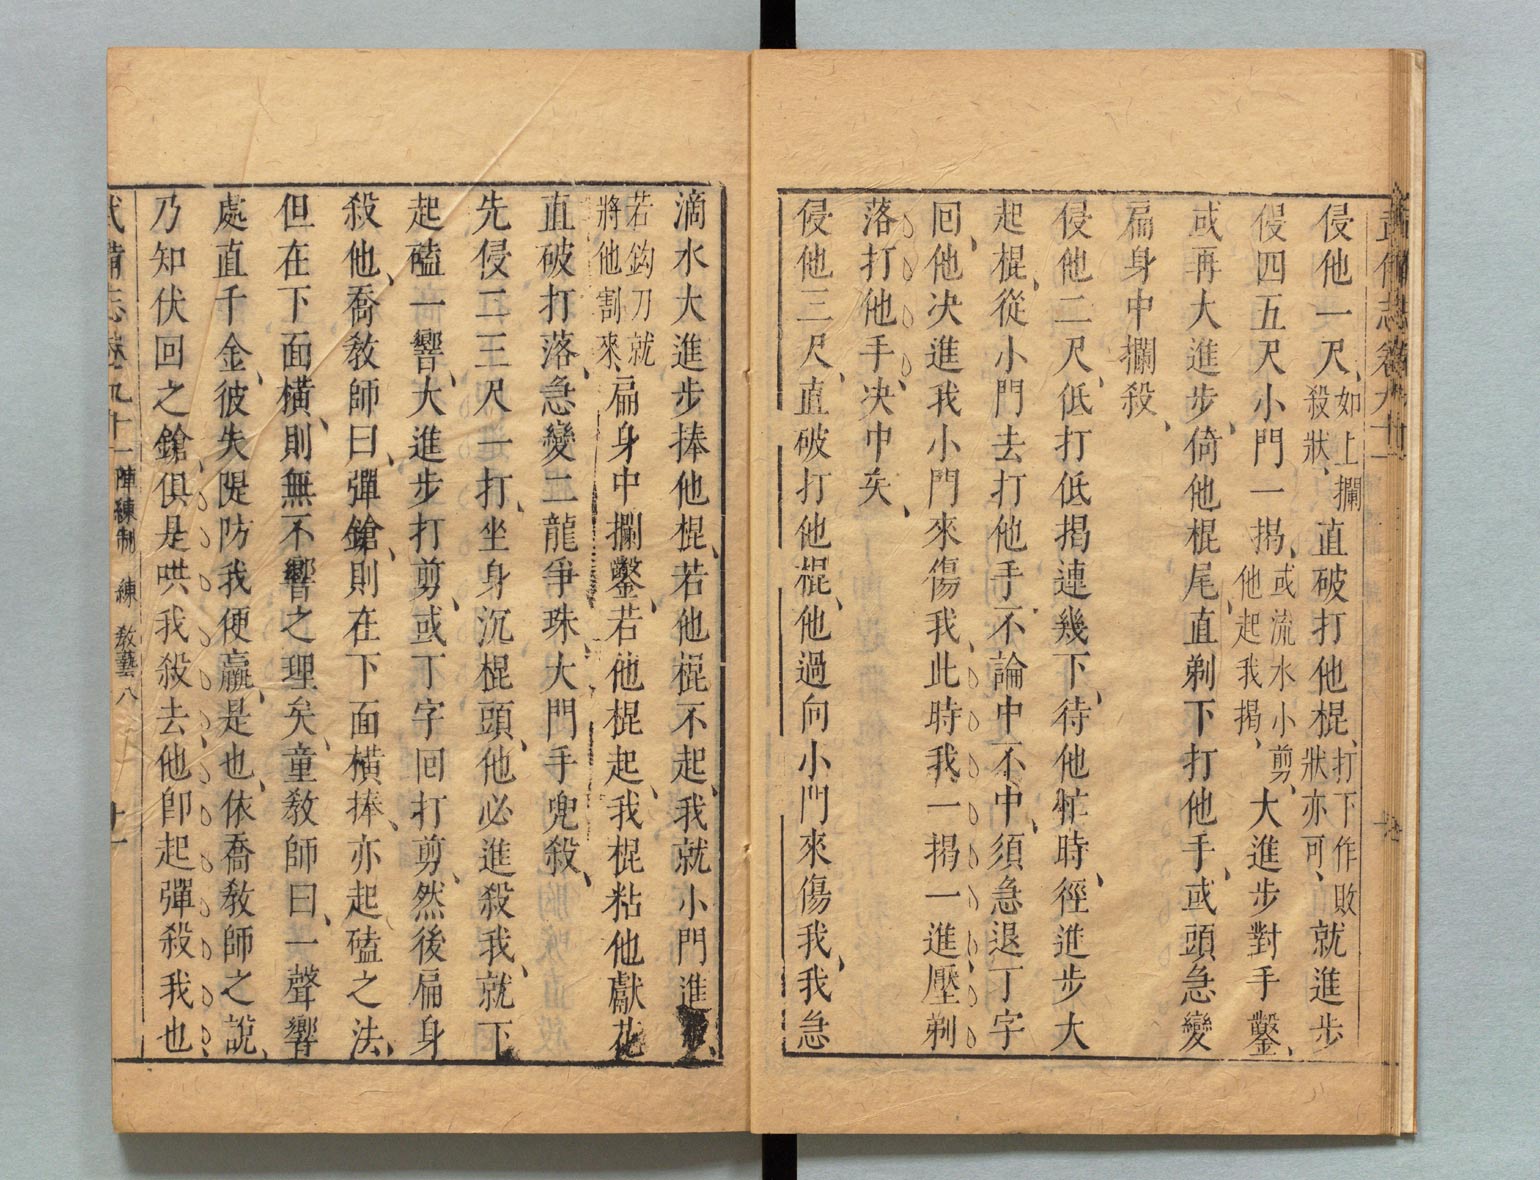 武備志卷九十一
侵他一尺、如上攔殺狀、直破打他棍、打下作敗狀亦可、就進步
侵四五尺小門一揭、或流水小剪、他起我揭、大進步對手鑿、
或再大進步、倚他棍尾、直剃下打他手、或頭急變
扁身中攔殺、
侵他二尺、低打低揭連幾下、待他忙時、徑進步大
起棍、從小門去打他手、不論中不中、須急退丁字
回、他决進我小門來傷我、此時我一揭一進壓剃
落、打他手、决中矣、
侵他三尺、直破打他棍、他過向小門來傷我、我急
滴水大進步捧他棍、若他棍不起、我就小門進
若鈎刀就將他割來、扁身中攔鑿、若他棍起、我棍粘他獻花
直破打落、急變二龍爭珠、大門手兜殺、
先侵二三尺一打、坐身沉棍頭、他必進殺我、就下
起磕一響、大進步打剪、或丁字回打剪、然後扁身
殺他、喬教師曰、彈鎗、則在下面橫捧、亦起磕之法、
但在下面橫、則無不響之理矣、童教師曰、一聲響
處直千金、彼失隄防我便贏、是也、依喬教師之說、
乃知伏回之鎗、俱是哄我殺去他卽起彈殺我也、
武備志卷九十一 陣練制 練 教藝八 十一